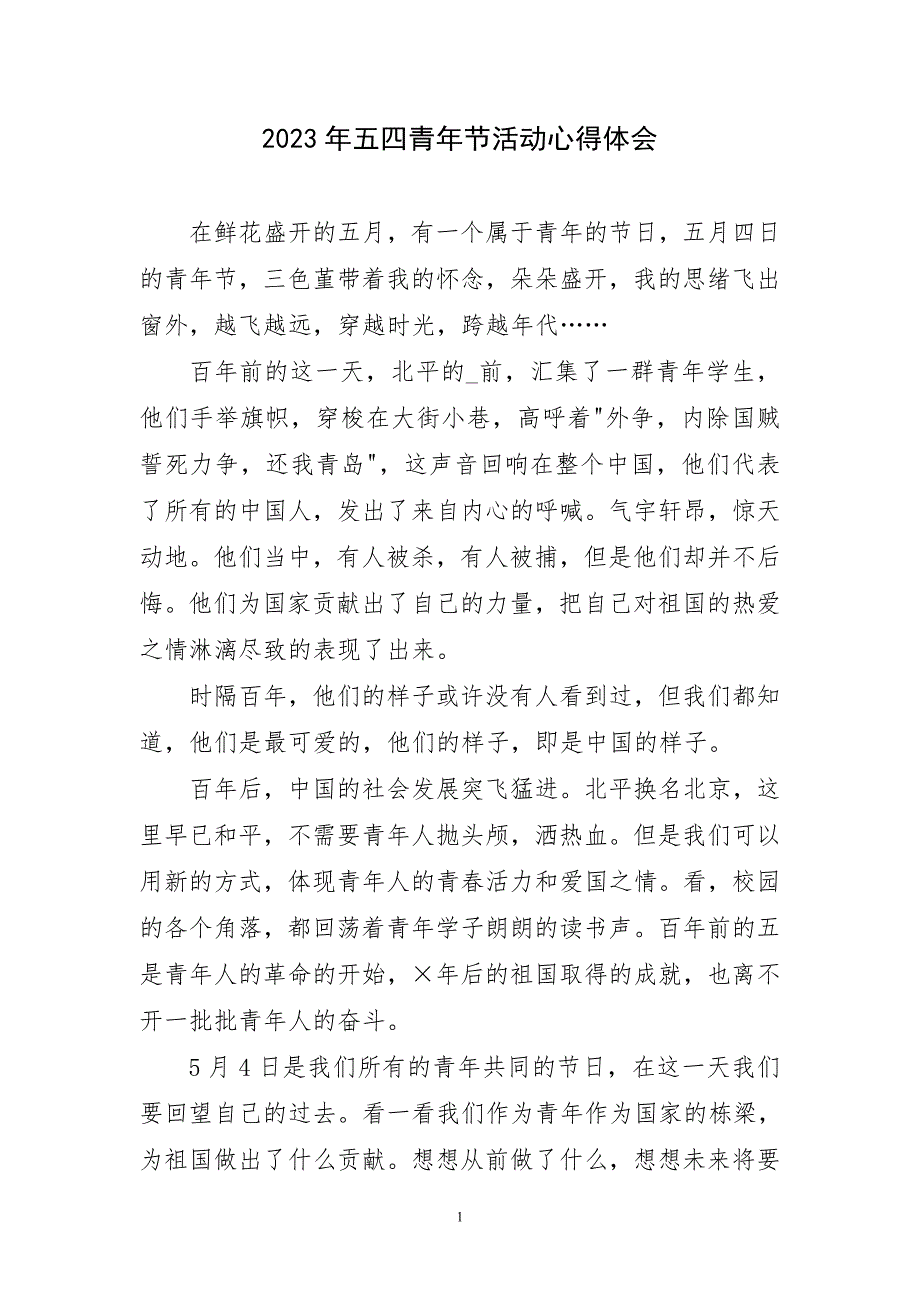 2023年五四青年节活动心得体会
在鲜花盛开的五月，有一个属于青年的节日，五月四日
的青年节，三色堇带着我的怀念，朵朵盛开，我的思绪飞出
窗外，越飞越远，穿越时光，跨越年代……
百年前的这一天，北平的_前，汇集了一群青年学生，
他们手举旗帜，穿梭在大街小巷，高呼着"外争，内除国贼
誓死力争，还我青岛"，这声音回响在整个中国，他们代表
了所有的中国人，发出了来自内心的呼喊。气宇轩昂，惊天
动地。他们当中，有人被杀，有人被捕，但是他们却并不后
悔。他们为国家贡献出了自己的力量，把自己对祖国的热爱
之情淋漓尽致的表现了出来。
时隔百年，他们的样子或许没有人看到过，但我们都知
道，他们是最可爱的，他们的样子，即是中国的样子。
百年后，中国的社会发展突飞猛进。北平换名北京，这
里早已和平，不需要青年人抛头颅，洒热血。但是我们可以
用新的方式，体现青年人的青春活力和爱国之情。看，校园
的各个角落，都回荡着青年学子朗朗的读书声。百年前的五
是青年人的革命的开始，×年后的祖国取得的成就，也离不
开一批批青年人的奋斗。
5月4日是我们所有的青年共同的节日，在这一天我们
要回望自己的过去。看一看我们作为青年作为国家的栋梁，
为祖国做出了什么贡献。想想从前做了什么，想想未来将要
1